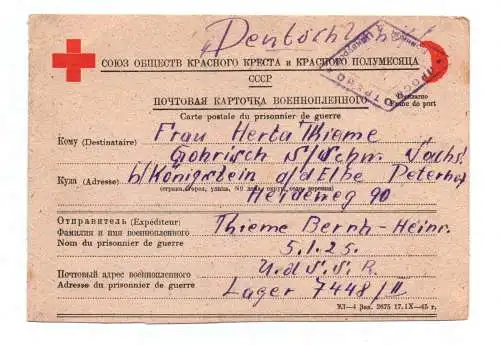 „Deutschland"
СОЮЗ ОБЩЕСТВ КРАСНОГО КРЕСТА и КРАСНОГО ПОЛУМЕСЯЦА
СССР
ПОЧТОВАЯ КАРТОЧКА ВОЕННОПЛЕННОГО Бесплатно
Carte postale du prisonnier de guerre Franc de port
Кому (Destinataire) Frau Herta Thieme
Gohrisch
Куда (Adresse) b/Königstein a/d Elbe
(страна, город, улица, № дома, округ, село, деревня)
Heideweg 90
Отправитель (Expéditeur) Thieme Bernh-Heinr.
Фамилия и имя военнопленного
Nom du prisonnier de guerre 5.1.25.
Почтовый адрес военнопленного U.d.S.S.R.
Adresse du prisonnier de guerre Lager 7448/II
2675 17.IX—45 г.